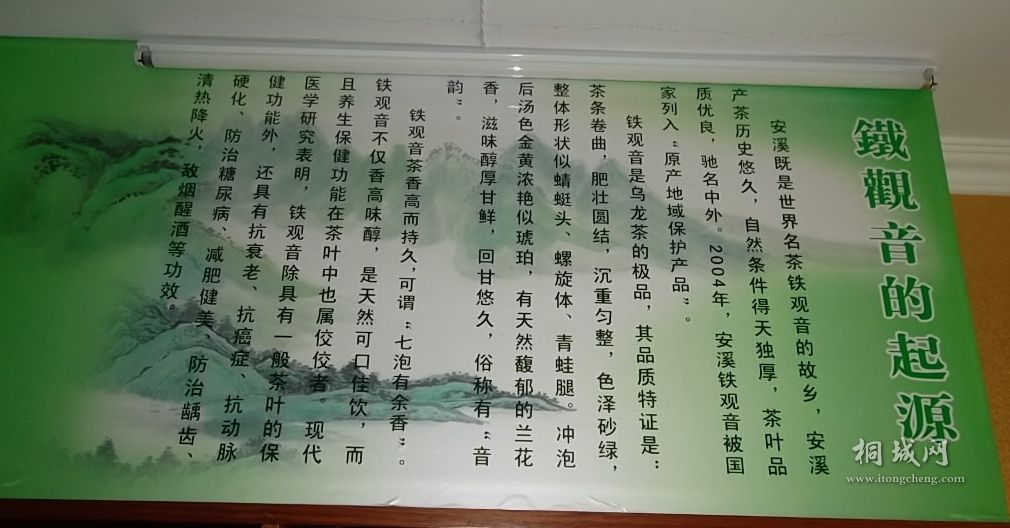 鐵觀音的起源
安溪既是世界名茶铁观音的故乡，安溪
产茶历史悠久，自然条件得天独厚，茶叶品
质优良，驰名中外。2004年，安溪铁观音被国
家列入“原产地域保护产品”。
铁观音是乌龙茶的极品，其品质特证是：
茶条卷曲，肥壮圆结，沉重匀整，色泽砂绿，
整体形状似蜻蜓头、螺旋体、青蛙腿。冲泡
后汤色金黄浓艳似琥珀，有天然馥郁的兰花
香，滋味醇厚甘鲜，回甘悠久，俗称有“音
韵”。
铁观音茶香高而持久，可谓“七泡有余香”。
铁观音不仅香高味醇，是天然可口佳饮，而
且养生保健功能在茶叶中也属佼佼者。现代
医学研究表明，铁观音除具有一般茶叶的保
健功能外，还具有抗衰老、抗癌症、抗动脉
硬化、防治糖尿病、减肥健美、防治龋齿、
清热降火，敌烟醒酒等功效。
桐城网
www.itongcheng.com